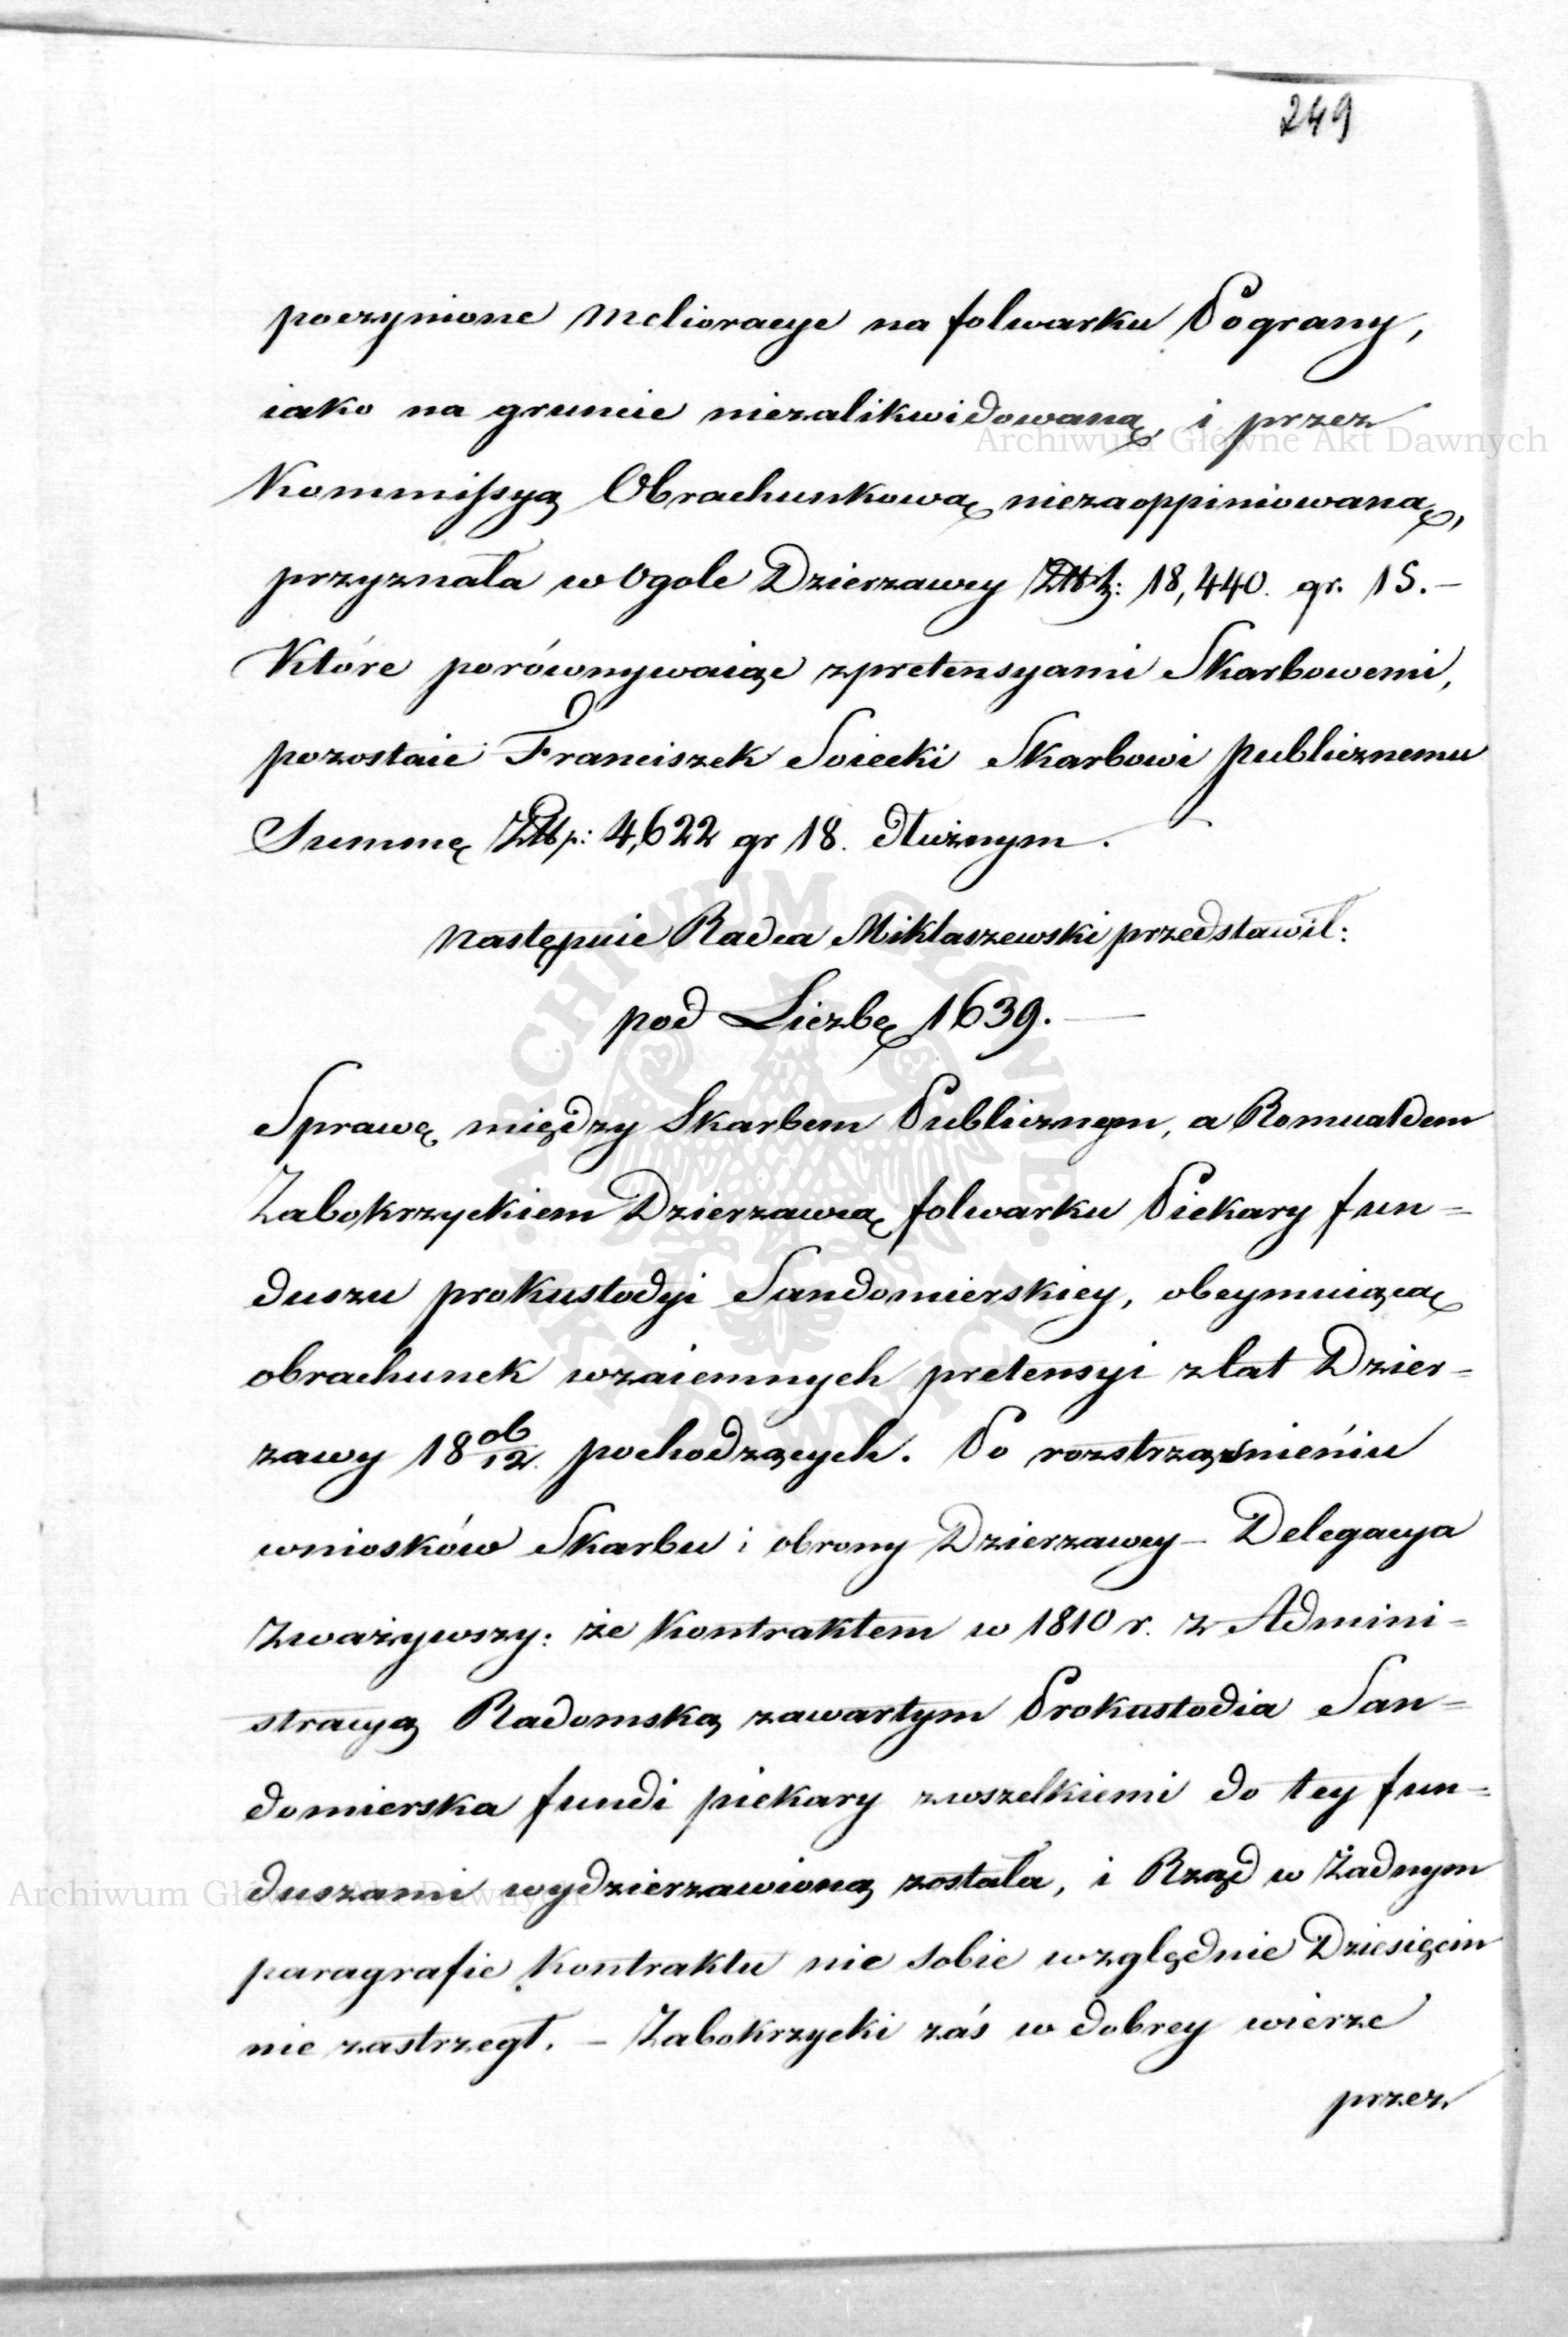 249
poczynione melioracye na folwarku Pograny,
iako na gruncie niezalikwidowaną, i przez
Kommissyą Obrachunkową niezaoppiniowaną,
przyznała w Ogole Dzierzawcy 18,440. gr. 15.–
Które porównywaiąc z pretensyami Skarbowemi,
pozostaie Franciszek Soiecki Skarbowi publicznemu
Summę Złłp: 4,622 gr 18. dłużnym.
Następnie Radca Miklaszewski przedstawił:
pod Liczbę 1639.—
Sprawę między Skarbem Publicznym, a Romualdem
Zabokrzyckiem Dzierzawcą folwarku Piekary fun=
duszu prokustodyi Sandomierskiey, obeymuiącą
obrachunek wzaiemnych pretensyi z lat Dzier=
zawy 18 10/12. pochodzących. Po rozstrząśnieniu
wniosków Skarbu i obrony Dzierzawcy – Delegacya
Zważywszy: że Kontraktem w 1810 r. z Admini=
stracyą Radomską zawartym Prokustodia San=
domierska fundi piekary z wszelkiemi do tey fun=
duszami wydzierzawioną została, i Rząd w Żadnym
paragrafie Kontraktu nic sobie względnie Dziesięcin
nie zastrzegł. – Zabokrzycki zaś w dobrey wierze
przez
Archiwum Główne Akt Dawnych
Archiwum Główne Akt Dawnych
ARCHIWUM GŁÓWNE AKT DAWNYCH